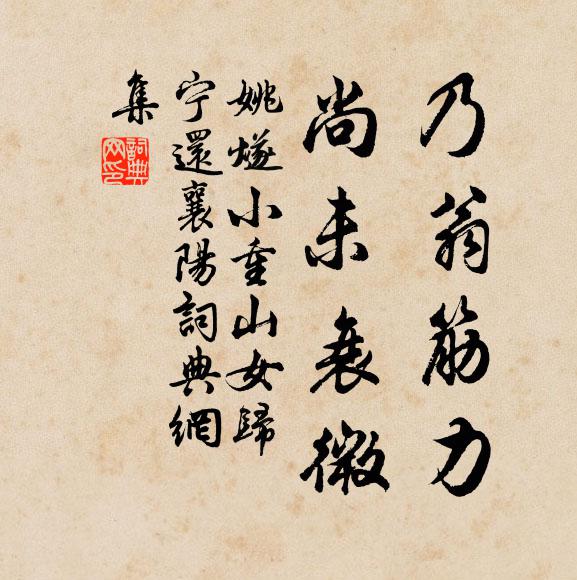 乃翁筋力
尚未衰微
姚燧小重山女歸
宁還襄陽詞典網
集
詞典
网印